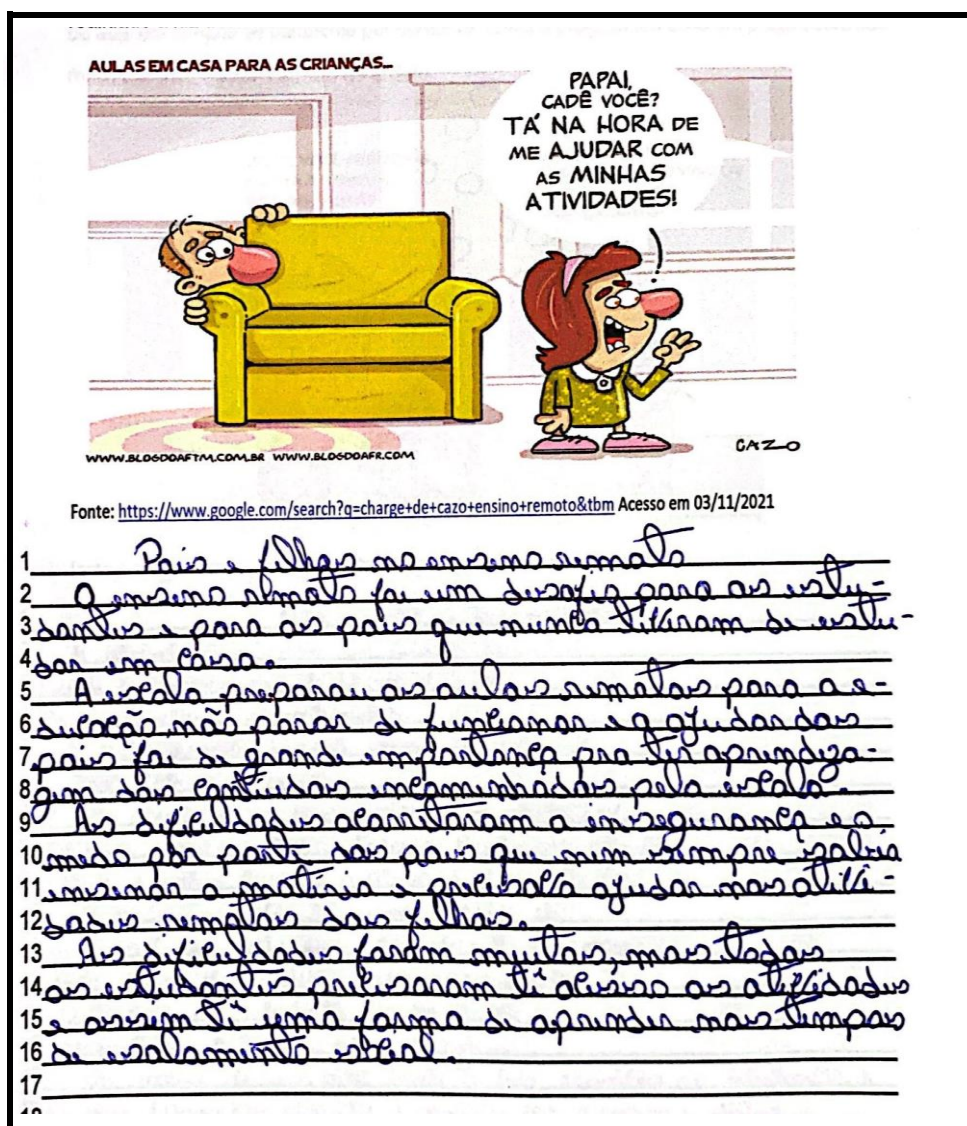 AULAS EM CASA PARA AS CRIANÇAS...
PAPAI,
CADÊ VOCÊ?
TÁ NA HORA DE
ME AJUDAR COM
AS MINHAS
ATIVIDADES!
CAZO
WWW.BLOGDOAFTM.COM.BR WWW.BLOGDOAFR.COM
Fonte: https://www.google.com/search?q=charge+de+cazo+ensino+remoto&tbm Acesso em 03/11/2021
1 Pais e filhos no ensino remoto
2 O ensino remoto foi um desafio para os estu-
3 dantes e para os pais que nunca tiveram de estu-
4 dar em casa.
5 A escola preparou as aulas remotas para a e-
6 ducação não parar de funcionar e a ajuda dos
7 pais foi de grande importança pra ter aprendiza-
8 gem dos contiudos encaminhados pela escola.
9 As dificuldades acarretaram a insegurança e o
10 medo por parte dos pais que nem sempre sabia
11 ensinar a matéria e precisava ajudar nas ativi-
12 dades remotas dos filhos.
13 As dificuldades foram muitas, mas todos
14 os estudantes precisaram tê acesso as atividades
15 e assim tê uma forma de aprender nos tempos
16 de isolamento social.
17